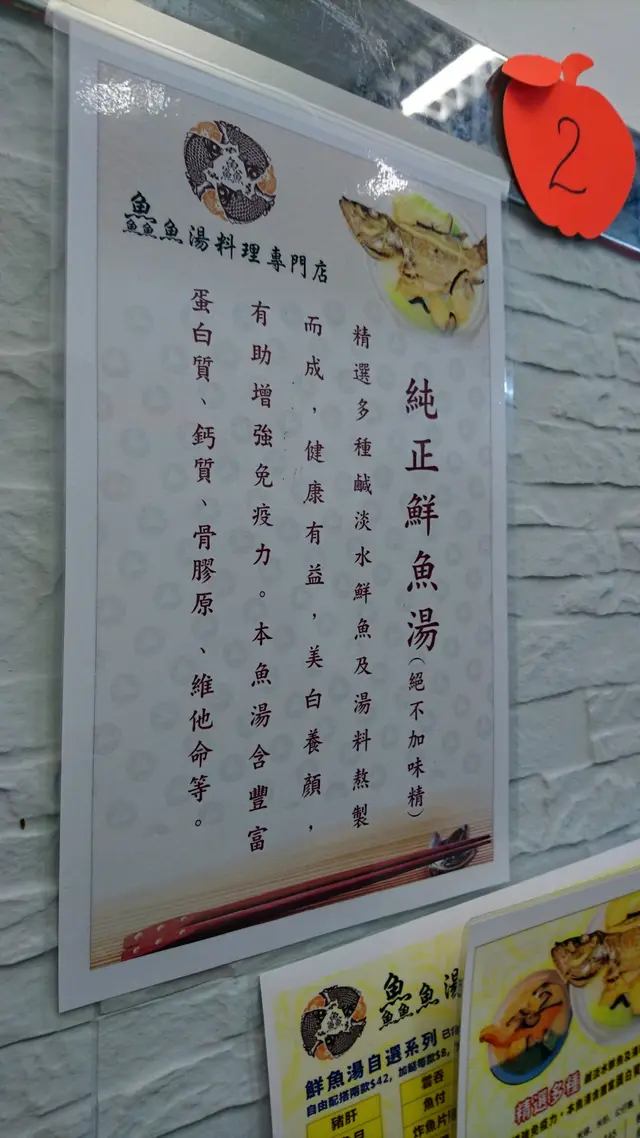 魚魚魚湯料理專門店
純正鮮魚湯(絕不加味精)
精選多種鹹淡水鮮魚及湯料熬製
而成，健康有益，美白養顏，
有助增強免疫力。本魚湯含豐富
蛋白質、鈣質、骨膠原、維他命等。
2
魚魚魚湯
鮮魚湯自選系列
自由配搭兩款$42，加餸每款$8，
豬肝
雲吞
魚付
炸魚片
精選多種